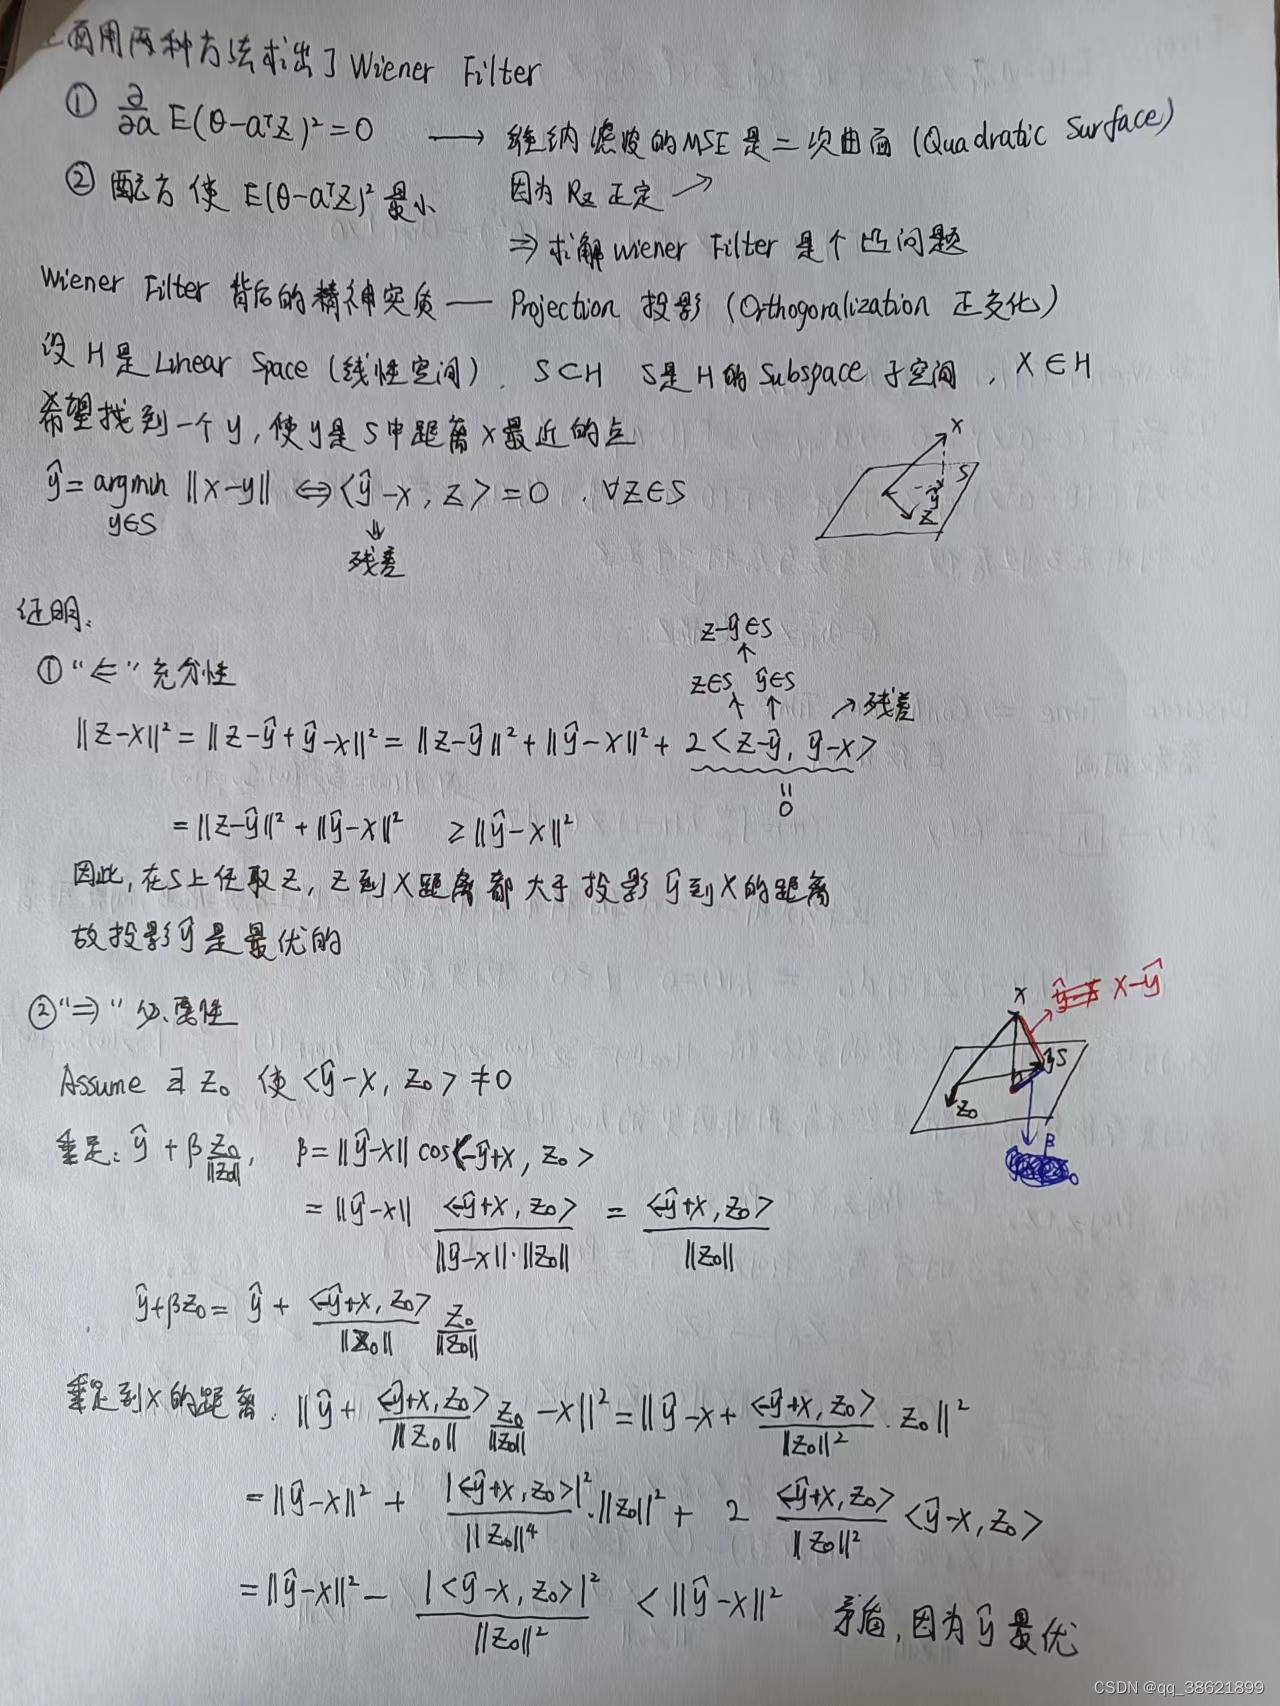 面用两种方法求出了 Wiener Filter
① ∂/∂a E(θ-aᵀZ)²=0 → 维纳滤波的MSE是二次曲面 (Quadratic Surface)
② 配方使 E(θ-aᵀZ)² 最小 因为 R_Z 正定 ↗
⇒ 求解 wiener Filter 是个凸问题
Wiener Filter 背后的精神实质 — Projection 投影 (Orthogoralization 正交化)
设 H 是 Linear Space (线性空间). S⊂H S是H的 Subspace 子空间, X∈H
希望找到一个 y, 使 y 是 S 中距离 X 最近的点
ŷ = argmin ‖X-y‖ ⇔ <ŷ-X, Z> = 0 . ∀Z∈S
y∈S
⇓
残差
X
S
ŷ
Z
证明:
① "⇐" 充分性
Z-ŷ∈S
↑
Z∈S ŷ∈S
↗残差
‖Z-X‖² = ‖Z-ŷ+ŷ-X‖² = ‖Z-ŷ‖² + ‖ŷ-X‖² + 2<Z-ŷ, ŷ-X>
=
0
= ‖Z-ŷ‖² + ‖ŷ-X‖² ≥ ‖ŷ-X‖²
因此, 在S上任取Z, Z到X距离都大于投影ŷ到X的距离
故投影ŷ是最优的
② "⇒" 必要性
X
X-ŷ
ŷ
S
Z₀
β
Assume ∃ Z₀ 使 <ŷ-X, Z₀> ≠ 0
垂足: ŷ + β Z₀/‖Z₀‖, β = ‖ŷ-X‖ cos<-ŷ+X, Z₀>
= ‖ŷ-X‖ <-ŷ+X, Z₀>/(‖ŷ-X‖·‖Z₀‖) = <-ŷ+X, Z₀>/‖Z₀‖
ŷ+βZ₀ = ŷ + <-ŷ+X, Z₀>/‖Z₀‖ Z₀/‖Z₀‖
垂足到X的距离. ‖ŷ + <-ŷ+X, Z₀>/‖Z₀‖ Z₀/‖Z₀‖ - X‖² = ‖ŷ-X + <-ŷ+X, Z₀>/‖Z₀‖² · Z₀‖²
= ‖ŷ-X‖² + |<-ŷ+X, Z₀>|²/‖Z₀‖⁴ · ‖Z₀‖² + 2 <-ŷ+X, Z₀>/‖Z₀‖² <ŷ-X, Z₀>
= ‖ŷ-X‖² - |<ŷ-X, Z₀>|²/‖Z₀‖² < ‖ŷ-X‖² 矛盾, 因为ŷ最优
CSDN @qq_38621899